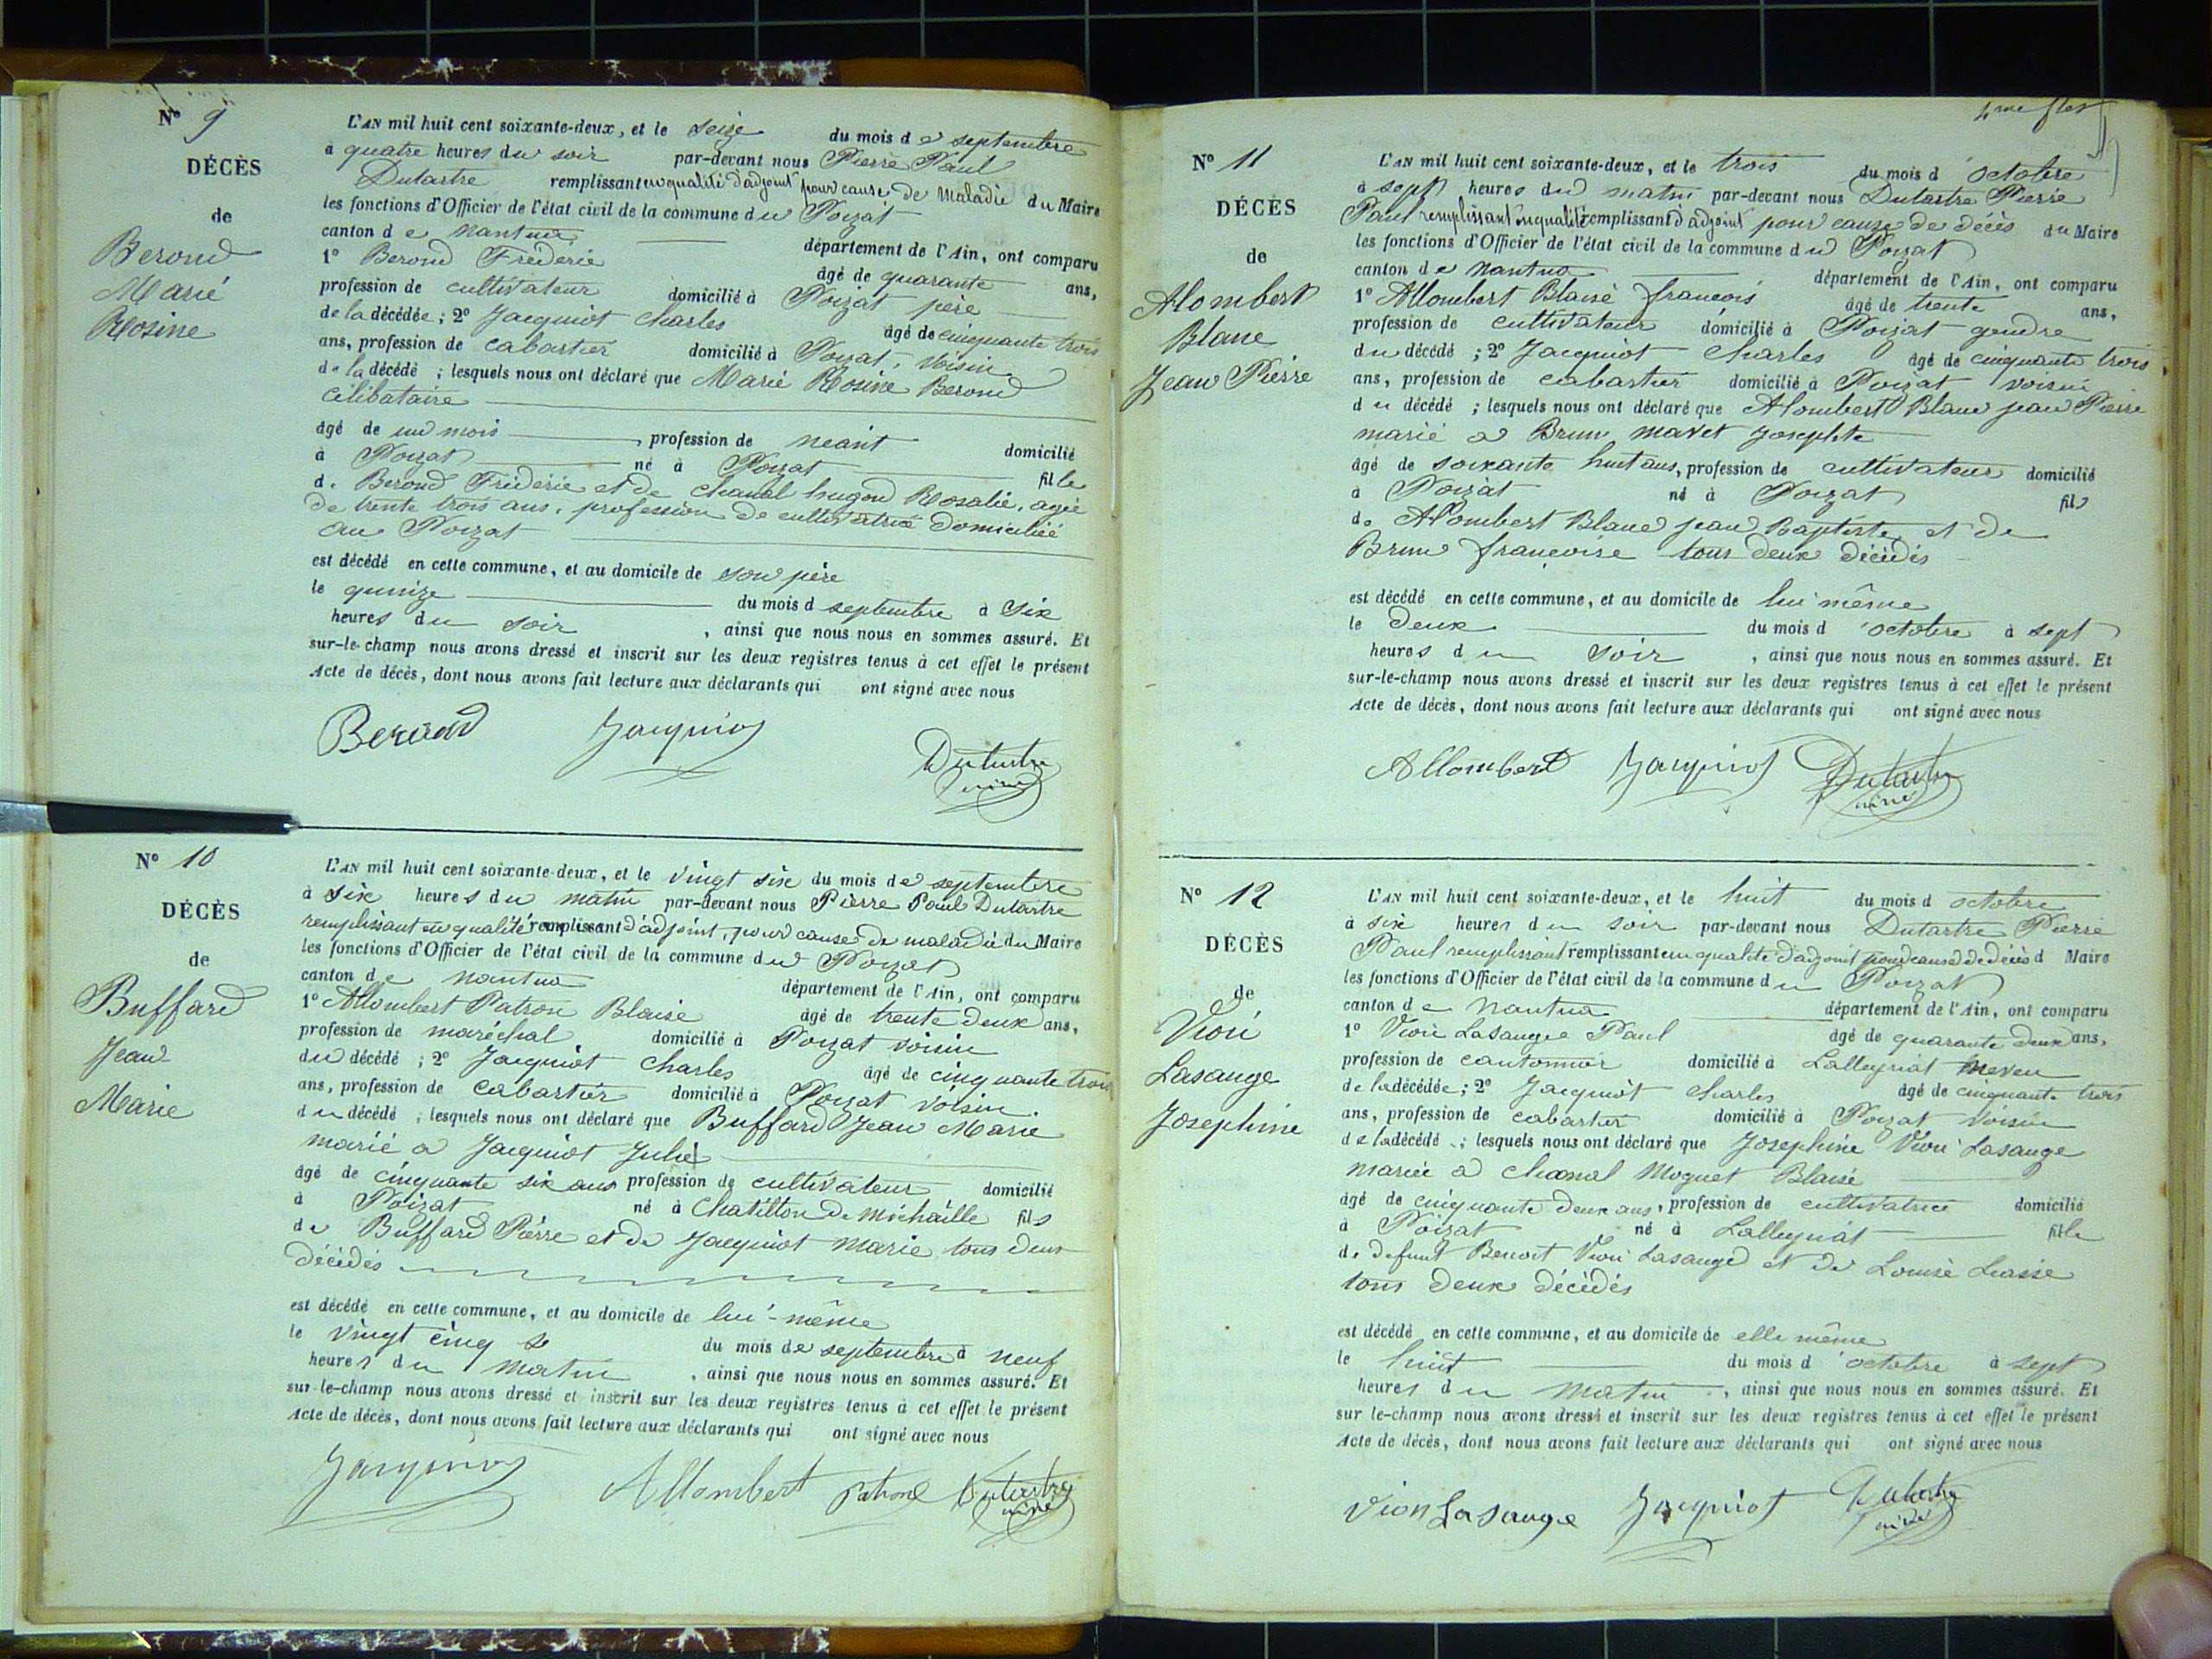 Nº 9
DÉCÈS
de
Berond
Marie
Rosine
L'AN mil huit cent soixante-deux, et le seize du mois de septembre
à quatre heures du soir par-devant nous Pierre Paul
Dutartre remplissant en qualité d'adjoint pour cause de maladie du Maire
les fonctions d'Officier de l'état civil de la commune du Poizat
canton de Nantua département de l'Ain, ont comparu
1º Berond Frédéric âgé de quarante ans,
profession de cultivateur domicilié à Poizat père
de la décédée ; 2º Jacquiot Charles âgé de cinquante trois
ans, profession de cabartier domicilié à Poizat, voisin
de la décédé ; lesquels nous ont déclaré que Marie Rosine Berond
célibataire
âgé de un mois profession de neant domicilié
à Poizat né à Poizat fille
de Berond Frédéric et de Chanal hugond Rosalie, agée
de trente trois ans, profession de cultivatrice domiciliée
au Poizat
est décédé en cette commune, et au domicile de son père
le quinze du mois d septembre à six
heures du soir, ainsi que nous nous en sommes assuré. Et
sur-le-champ nous avons dressé et inscrit sur les deux registres tenus à cet effet le présent
Acte de décès, dont nous avons fait lecture aux déclarants qui ont signé avec nous
Berond Jacquiot Dutartre
Nº 10
DÉCÈS
de
Buffard
Jean
Marie
L'AN mil huit cent soixante-deux, et le vingt six du mois de septembre
à six heures du matin par-devant nous Pierre Paul Dutartre
remplissant en qualité remplissant d'adjoint, pour cause de maladie du Maire
les fonctions d'Officier de l'état civil de la commune du Poizat
canton de Nantua département de l'Ain, ont comparu
1º Allombert Patron Blaise âgé de trente deux ans,
profession de maréchal domicilié à Poizat voisin
du décédé ; 2º Jacquiot Charles âgé de cinquante trois
ans, profession de cabartier domicilié à Poizat voisin.
du décédé ; lesquels nous ont déclaré que Buffard Jean Marie
marié a Jacquiot Julie
âgé de cinquante six ans profession de cultivateur domicilié
à Poizat né à Chatillon de Michaille fils
de Buffard Pierre et de Jacquiot Marie tous deux
décédés
est décédé en cette commune, et au domicile de lui-même
le vingt cinq du mois de septembre à neuf
heures du matin, ainsi que nous nous en sommes assuré. Et
sur-le-champ nous avons dressé et inscrit sur les deux registres tenus à cet effet le présent
Acte de décès, dont nous avons fait lecture aux déclarants qui ont signé avec nous
Jacquiot Allombert patron Dutartre
Nº 11
DÉCÈS
de
Alombert
Blanc
Jean Pierre
L'AN mil huit cent soixante-deux, et le trois du mois d'octobre
à sept heures du matin par-devant nous Dutartre Pierre
Paul remplissant en qualité remplissant d'adjoint pour cause de décès du Maire
les fonctions d'Officier de l'état civil de la commune du Poizat
canton de Nantua département de l'Ain, ont comparu
1º Allombert Blaise françois âgé de trente ans,
profession de cultivateur domicilié à Poizat gendre
du décédé ; 2º Jacquiot Charles âgé de cinquante trois
ans, profession de cabartier domicilié à Poizat voisin
du décédé ; lesquels nous ont déclaré que Alombert Blanc jean Pierre
marié a Brun mavet Josephte
âgé de soixante huit ans, profession de cultivateur domicilié
à Poizat né à Poizat fils
de Alombert Blanc jean Baptiste et de
Brun françoise tous deux décédés
est décédé en cette commune, et au domicile de lui même
le deux du mois d'octobre à sept
heures du soir, ainsi que nous nous en sommes assuré. Et
sur-le-champ nous avons dressé et inscrit sur les deux registres tenus à cet effet le présent
Acte de décès, dont nous avons fait lecture aux déclarants qui ont signé avec nous
Allombert Jacquiot Dutartre
Nº 12
DÉCÈS
de
Vion
Lasange
Josephine
L'AN mil huit cent soixante-deux, et le huit du mois d octobre
à six heures du soir par-devant nous Dutartre Pierre
Paul remplissant remplissant en qualité d'adjoint pour cause de décès d Maire
les fonctions d'Officier de l'état civil de la commune du Poizat
canton de Nantua département de l'Ain, ont comparu
1º Vion Lasange Paul âgé de quarante deux ans,
profession de cantonnier domicilié à Lalleyriat neveu
de la décédée ; 2º Jacquiot Charles âgé de cinquante trois
ans, profession de cabartier domicilié à Poizat voisin
de la décédé ; lesquels nous ont déclaré que Josephine Vion Lasange
mariée a Chanal Moguet Blaise
âgé de cinquante deux ans, profession de cultivatrice domicilié
à Poizat né à Lalleyriat fille
de defunt Benoit Vion Lasange et de Louise
tous deux décédés
est décédé en cette commune, et au domicile de elle même
le huit du mois d'octobre à sept
heures du matin, ainsi que nous nous en sommes assuré. Et
sur le-champ nous avons dressé et inscrit sur les deux registres tenus à cet effet le présent
Acte de décès, dont nous avons fait lecture aux déclarants qui ont signé avec nous
Vion Lasange Jacquiot Dutartre